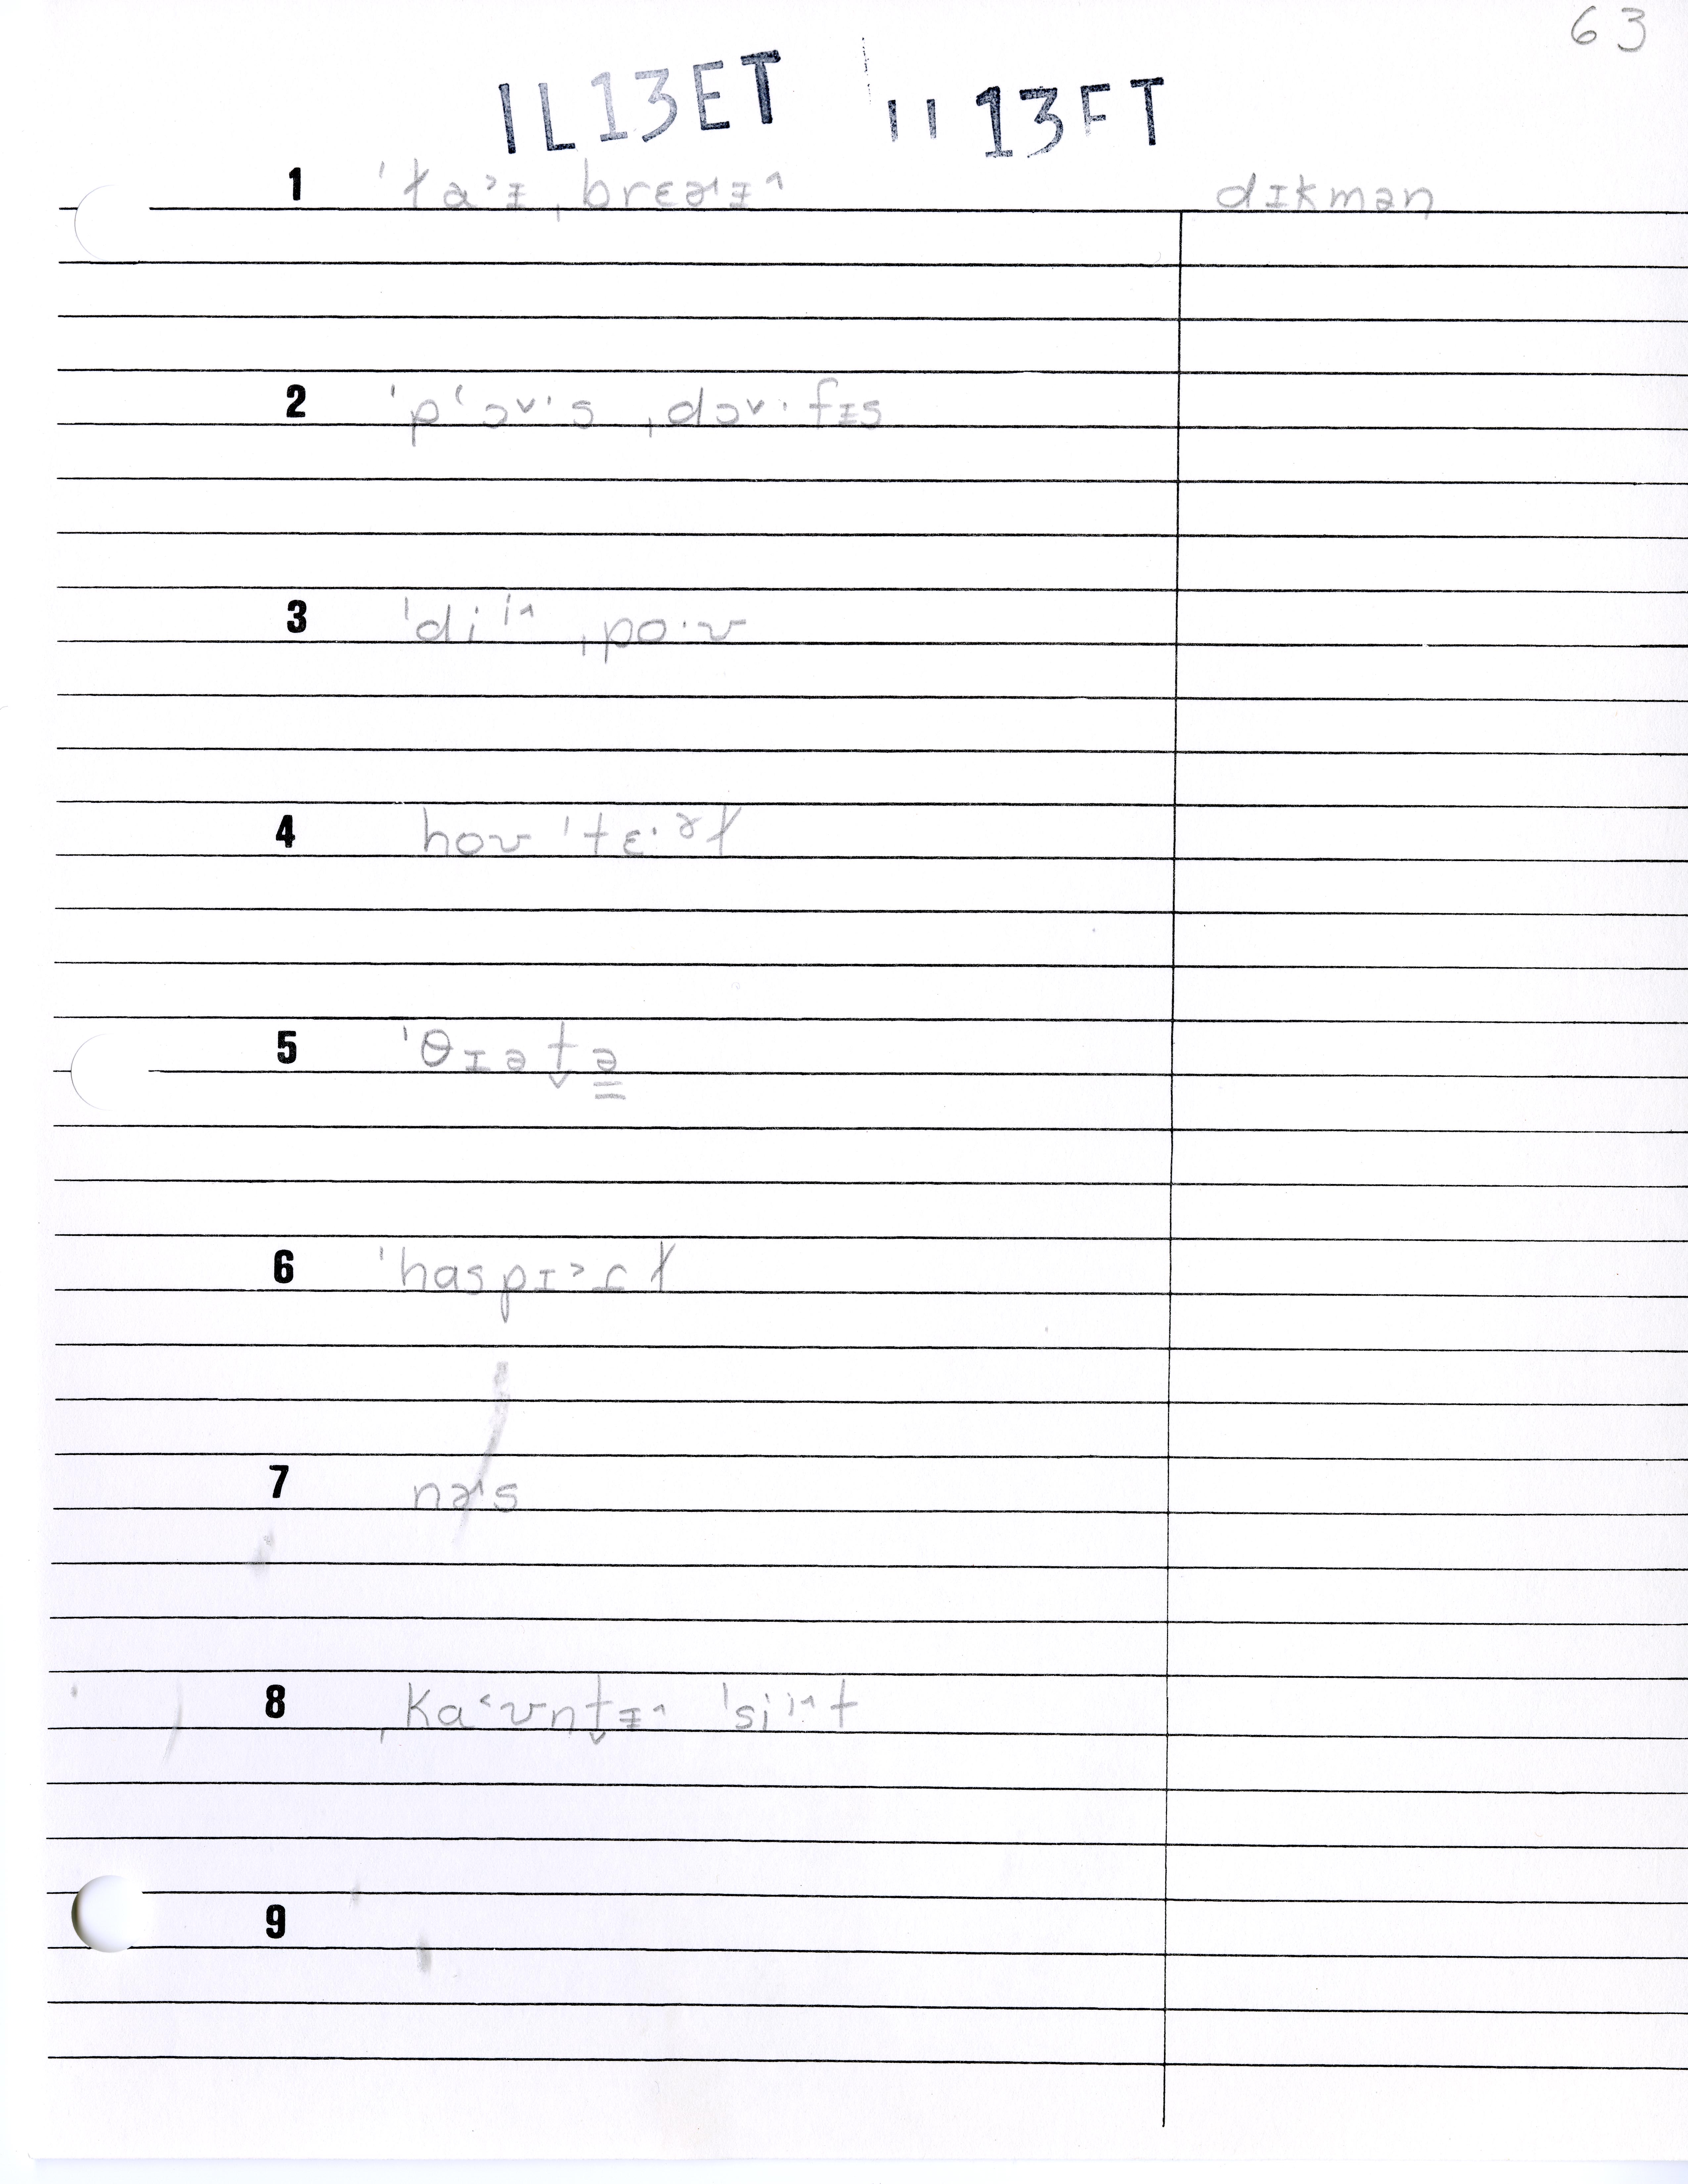 63
IL13ET II 13FT
1 ˈɫa˃ɪ ˌbrɛɚɪ˄ dɪkmən
2 ˈpʻɔv·s ˌdɔv·fɪs
3 ˈdi·i˄ ˌpo·ʊ
4 hoʊ ˈtɛ·əɫ
5 ˈθɪət̬ə
6 ˈhaspɪ˃ɾɫ
7 nɚs
8 ˌka˂ʊnt̬ɪ˄ ˈsi·i˄t
9